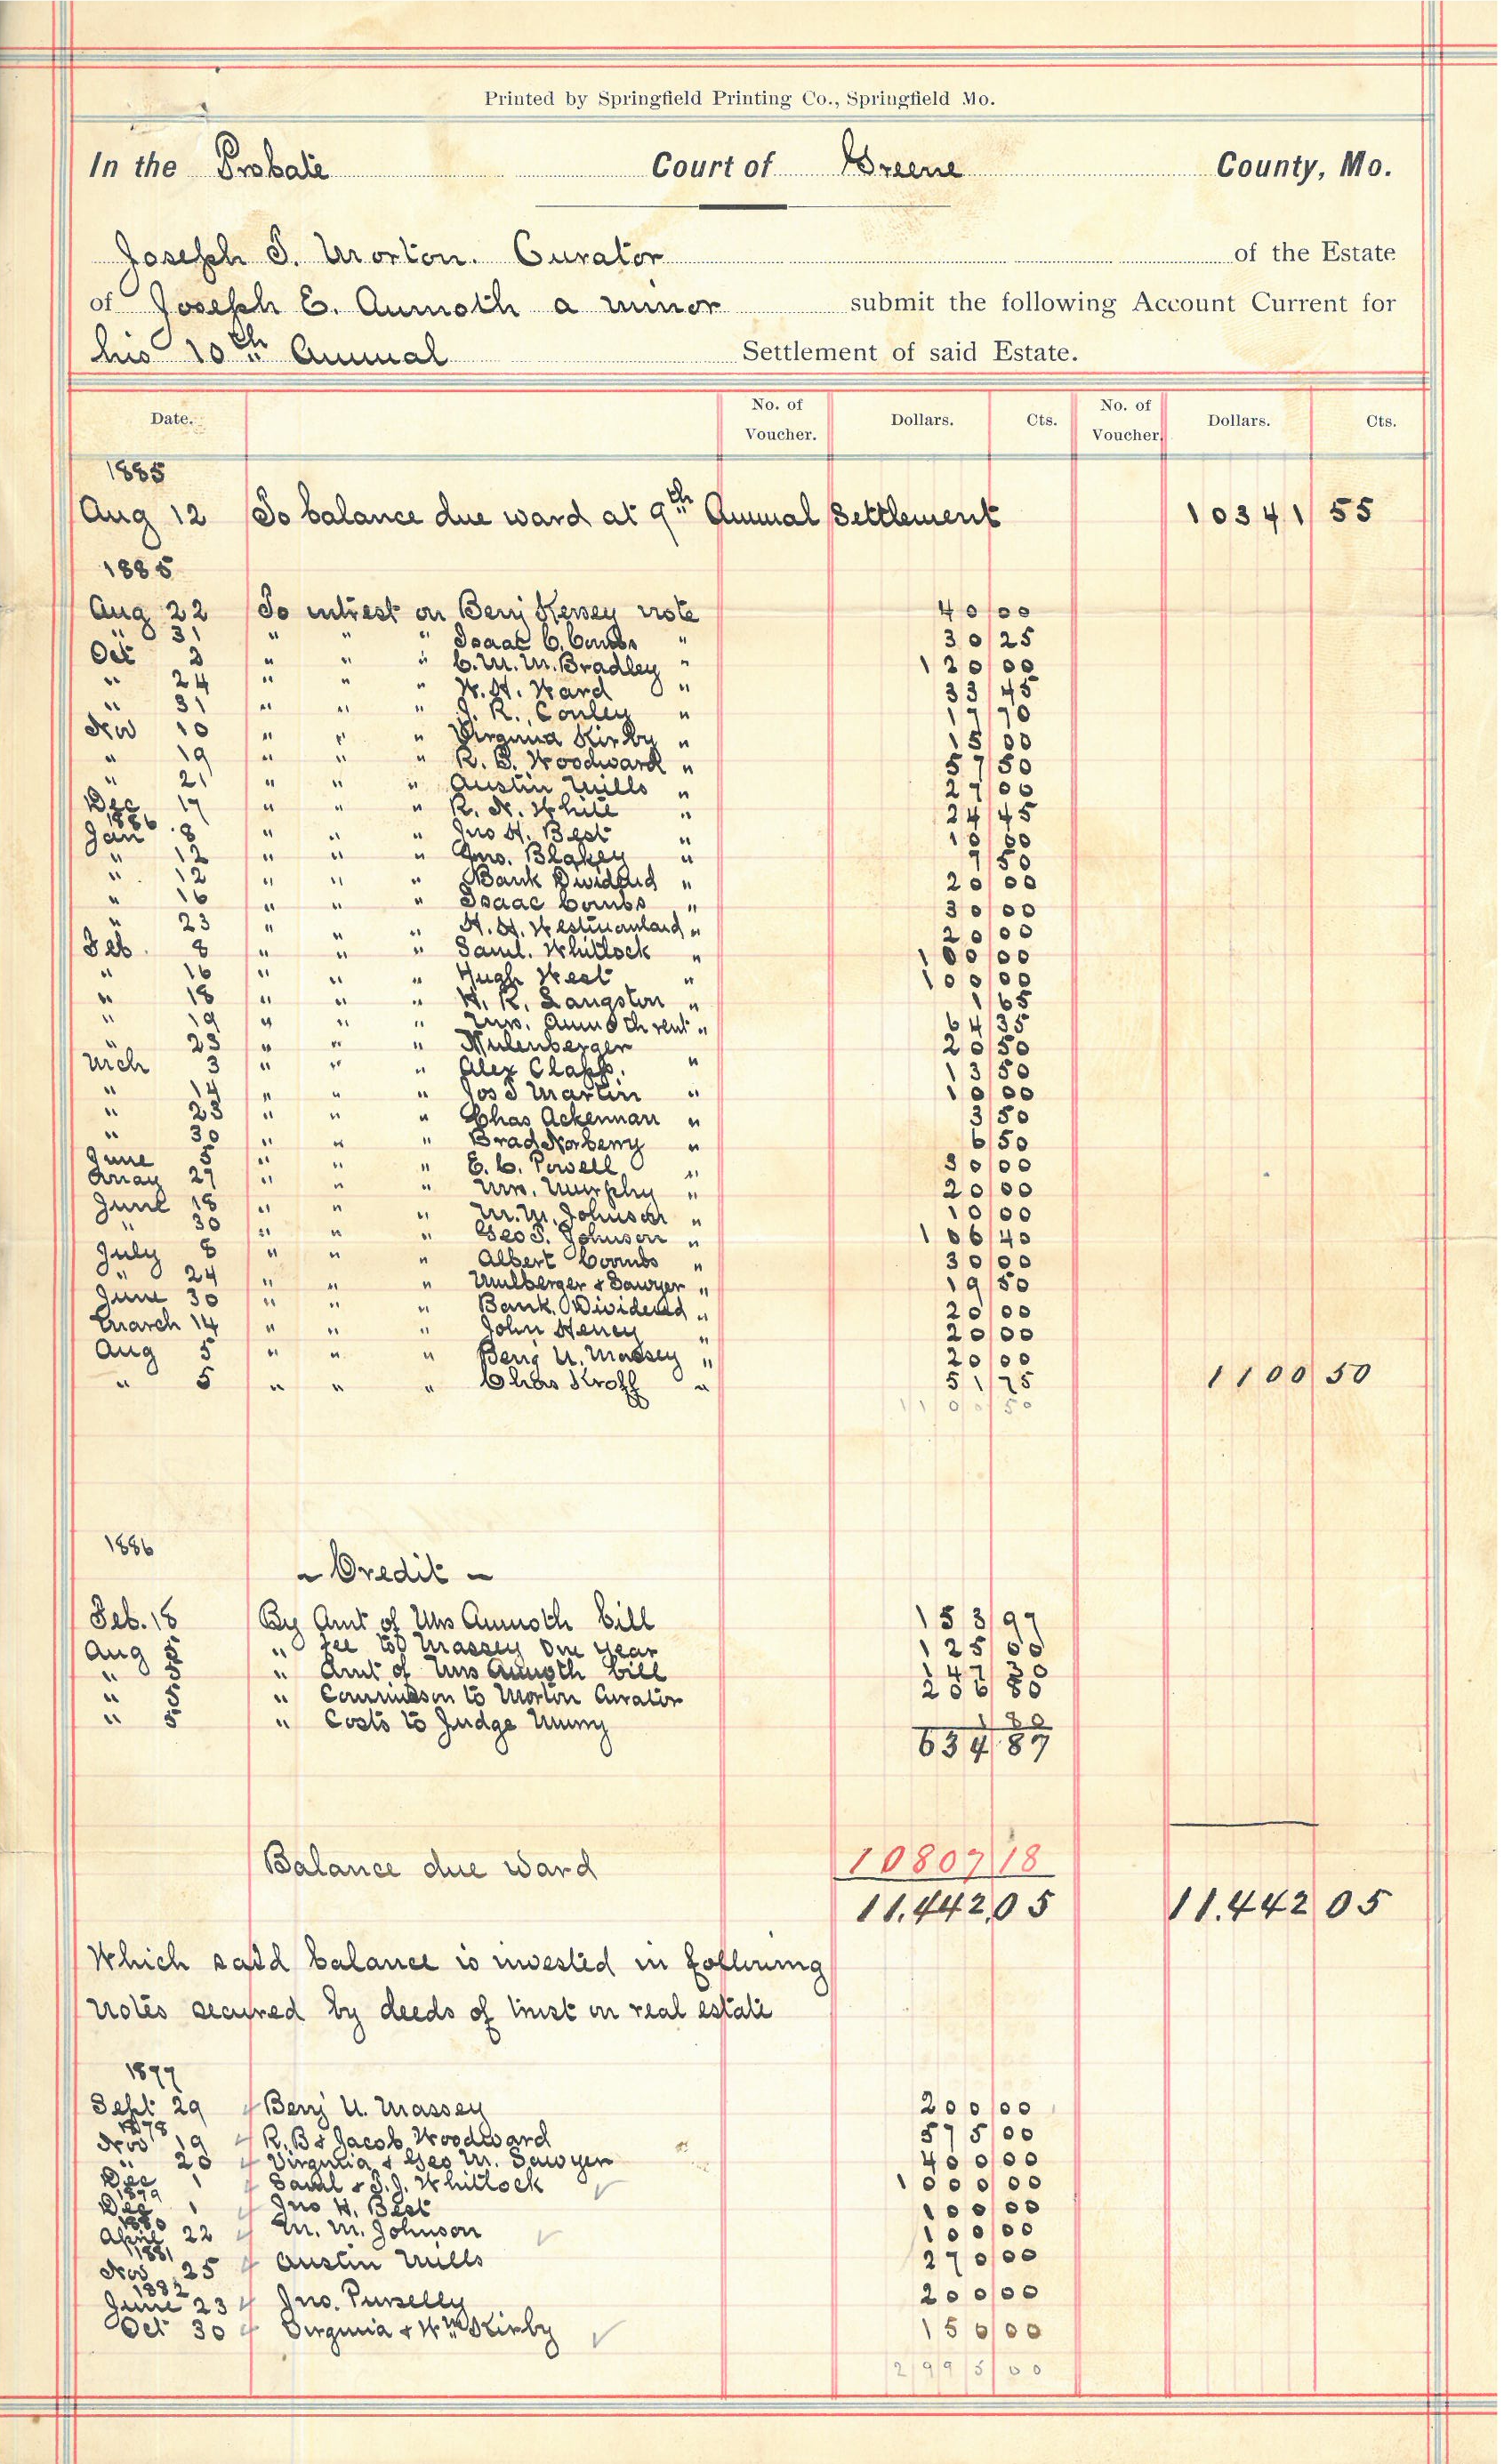 Printed by Springfield Printing Co., Springfield Mo.
In the Probate Court of Greene County, Mo.
Joseph T. Morton. Curator of the Estate
of Joseph E. Aumoth a minor submit the following Account Current for
his 10th Annual Settlement of said Estate.
Date. No. of Voucher. Dollars. Cts. No. of Voucher. Dollars. Cts.
1885
Aug 12 To balance due ward at 9th Annual Settlement 10341 55
1885
Aug 22 To intrest on Benj Kersey note 40 00
" 31 " " " Isaac C. Combs " 30 25
Oct 3 " " " C. M. M. Bradley " 120 00
" 24 " " " W. H. Ward " 33 45
" 31 " " " J. R. Conley " 17 70
Nov 10 " " " Virginia Kirby " 15 00
" 19 " " " R. B. Woodward " 57 50
" 21 " " " Austin Mills " 27 00
Dec 17 " " " R. N. White " 24 45
1886
Jan 8 " " " Jno H. Best " 10 00
" 12 " " " Jno. Blakey " 7 50
" 12 " " " Bank Dividend " 20 00
" 16 " " " Isaac Combs " 30 00
" 23 " " " 20 00
Feb. 8 " " " Saml. Whitlock " 100 00
" 16 " " " Hugh West " 100 00
" 18 " " " H. R. Langston " 1 65
" 19 " " " Mrs. Aumoth rent " 64 35
" 23 " " " Mulenberger 20 50
Mch 3 " " " Alex Clapp. " 13 50
" 14 " " " Jos T Martin " 10 00
" 23 " " " Chas Ackerman " 3 50
" 30 " " " Brad Norberry " 6 50
June 5 " " " E. C. Powell " 30 00
May 27 " " " Wm. Murphy " 20 00
June 18 " " " M. M. Johnson " 10 00
" 30 " " " Geo T. Johnson " 106 40
July 8 " " " Albert Coombs " 30 00
" 24 " " " Mulberger & Sawyer " 19 50
June 30 " " " Bank Dividend " 20 00
March 14 " " " John Henry " 20 00
Aug 5 " " " Benj U. Massey " 20 00
" 5 " " " Chas Kroff " 51 75 1100 50
1100 50
1886
~ Credit ~
Feb. 18 By Amt of Mrs Aumoth bill 153 97
Aug 5 " fee to Massey one year 125 00
" 5 " Amt of Mrs Aumoth bill 147 30
" 5 " Commisson to Morton Curator 206 80
" 5 " Costs to Judge 1 80
634 87
Balance due ward 10807 18
11.442 05 11.442 05
Which said balance is invested in following
notes secured by deeds of trust on real estate
1877
Sept 29 Benj U. Massey 200 00
1878
Nov 19 R. B & Jacob Woodward 575 00
" 20 Virginia & Geo M. Sawyer 400 00
Dec 1 Saml & T. J. Whitlock 1000 00
1879
Dec 1 Jno H. Best 100 00
1880
April 22 M. M. Johnson 100 00
1881
Nov 25 Austin Mills 270 00
1882
June 23 Jno. Purselly 200 00
Oct 30 Virginia & Wm Kirby 150 00
2995 00